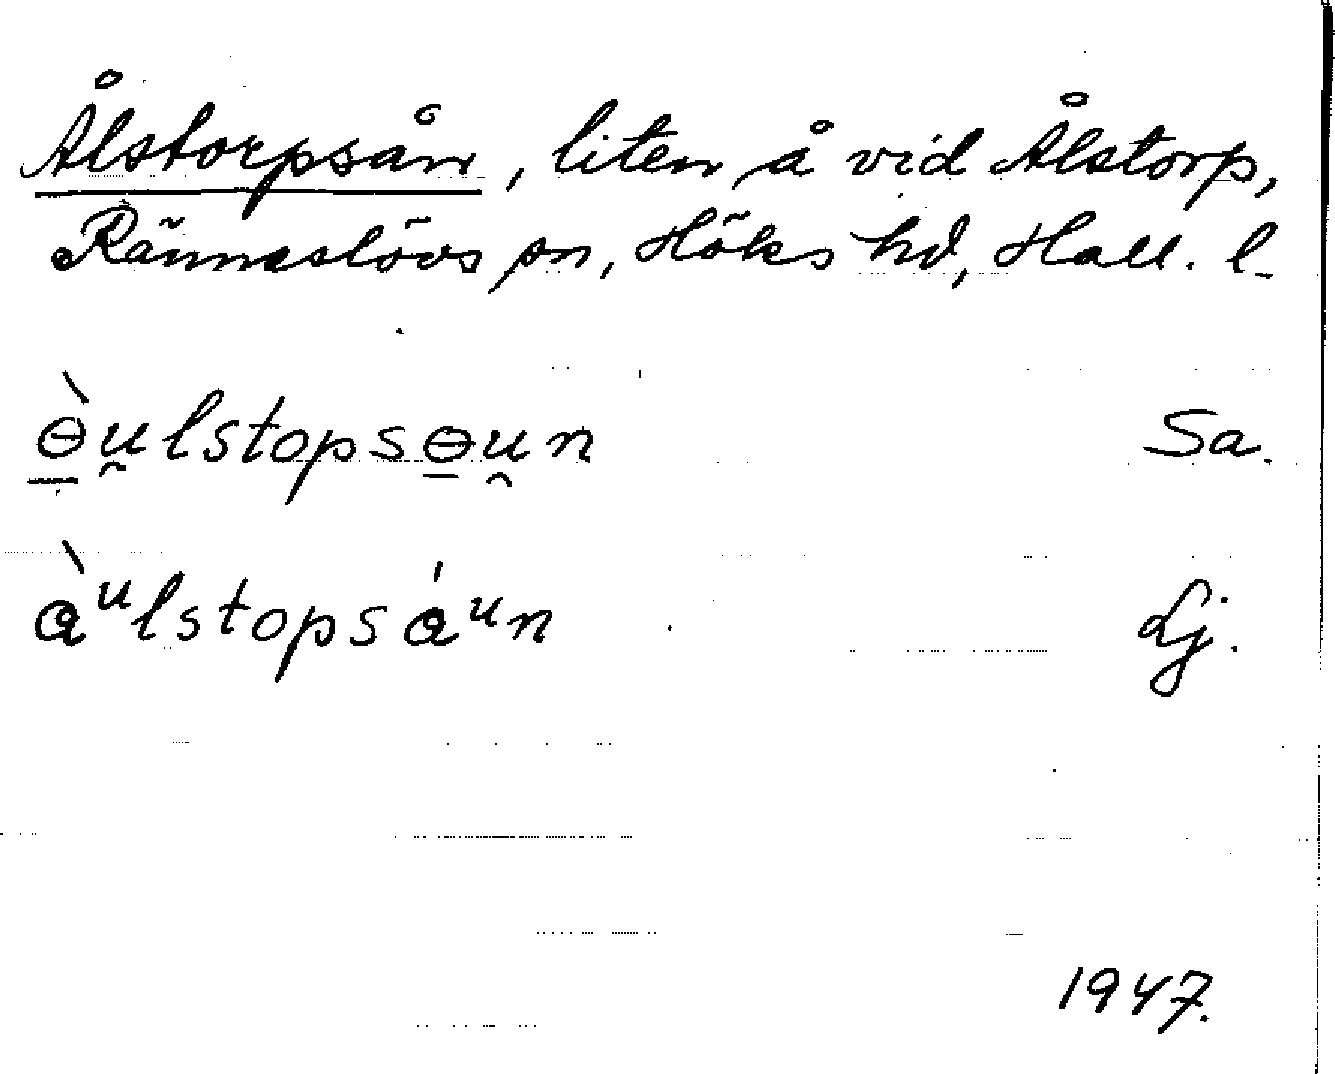 Ålstorpsån, liten å vid Ålstorp,
Ränneslövs sn, Höks hd, Hall. l.
ɵ̱̀u̯lstopsɵ̱u̯n Sa.
àᵘlstopsáᵘn Lj.
1947.